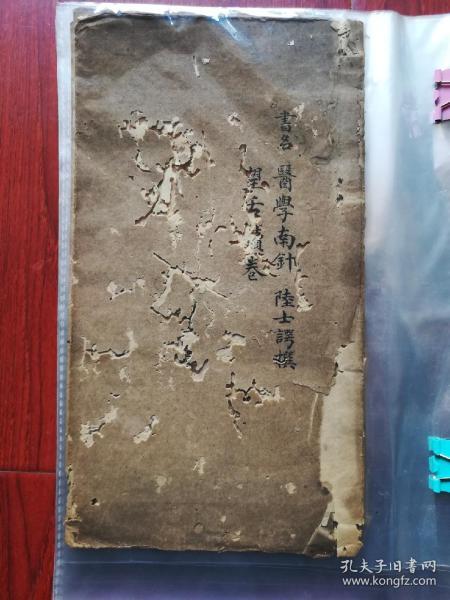 書名 醫學南針 陸士諤撰
望舌 卷
孔夫子旧书网
www.kongfz.com